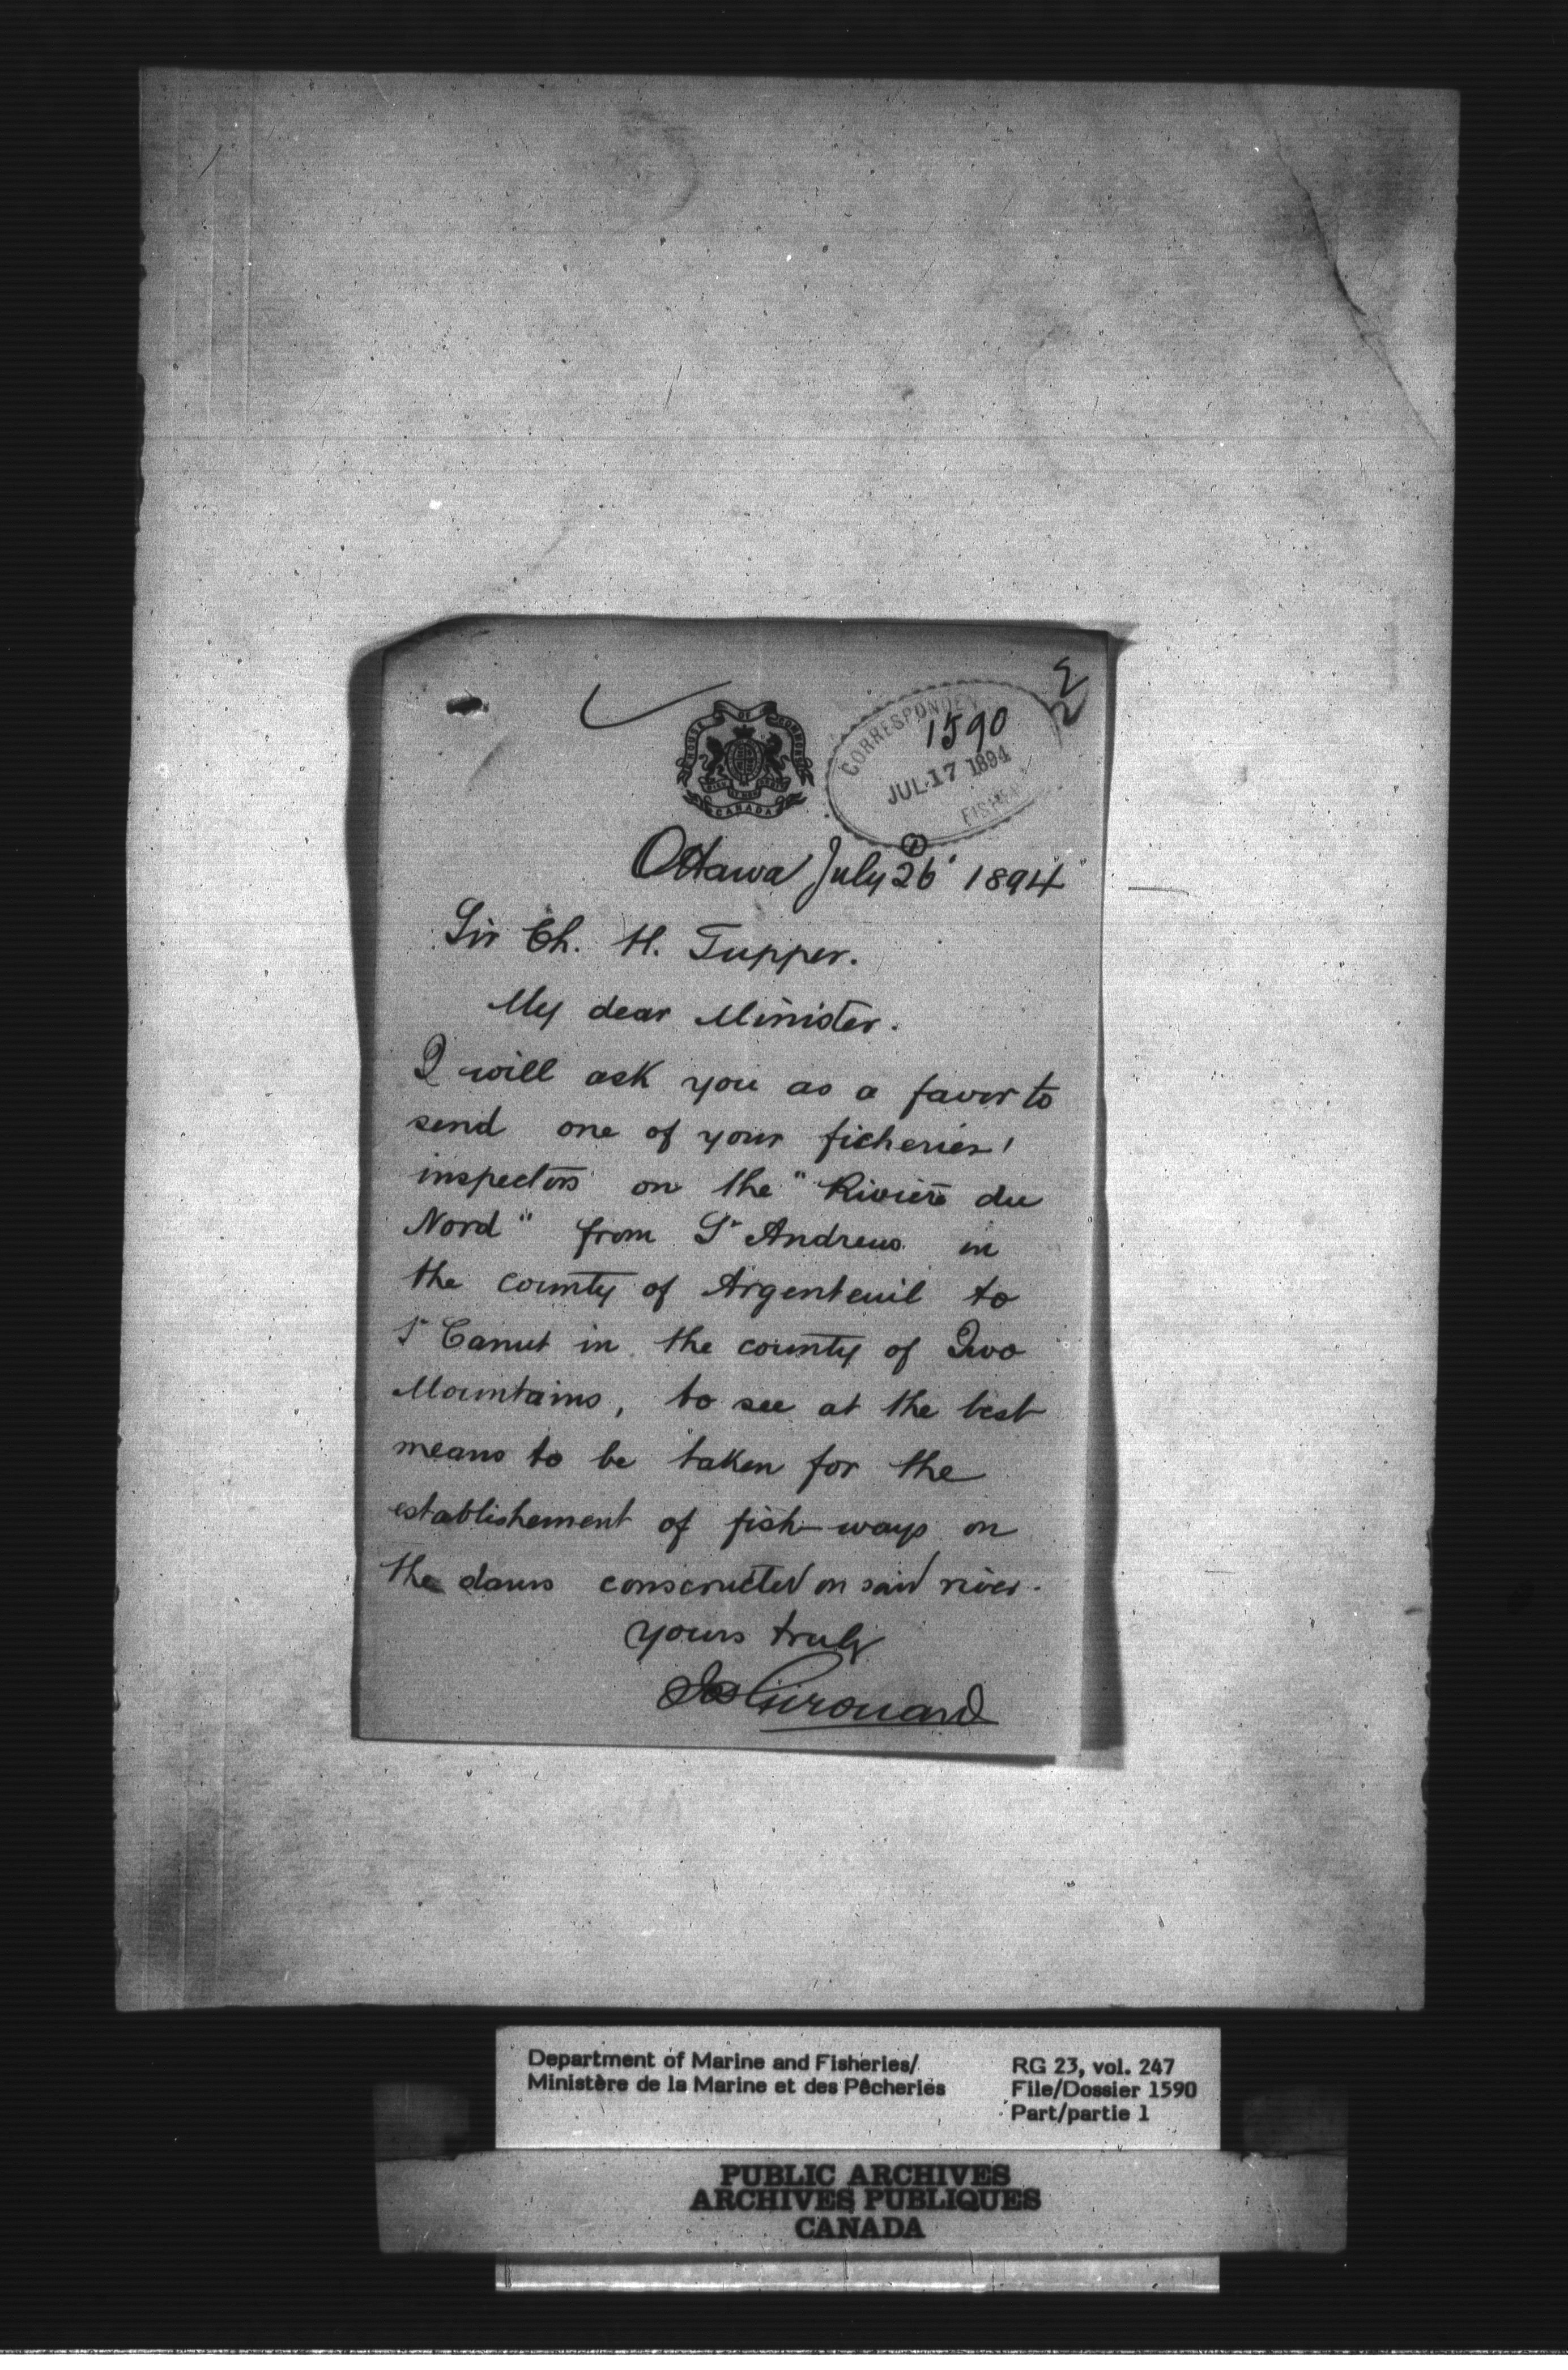 HOUSE OF COMMONS
CANADA
CORRESPONDEN
1590
JUL 17 1894
FISHER
Ottawa July 26 1894
Sir Ch. H. Tupper.
My dear Minister.
I will ask you as a favor to
send one of your ficheries'
inspectors on the "Riviere du
Nord" from St Andrews in
the county of Argenteuil to
St Canut in the county of Two
Mountains, to see at the best
means to be taken for the
establishement of fish-ways on
the dams constructed on said river.
Yours truly
Jos Girouard
Department of Marine and Fisheries/ RG 23, vol. 247
Ministère de la Marine et des Pêcheries File/Dossier 1590
Part/partie 1
PUBLIC ARCHIVES
ARCHIVES PUBLIQUES
CANADA